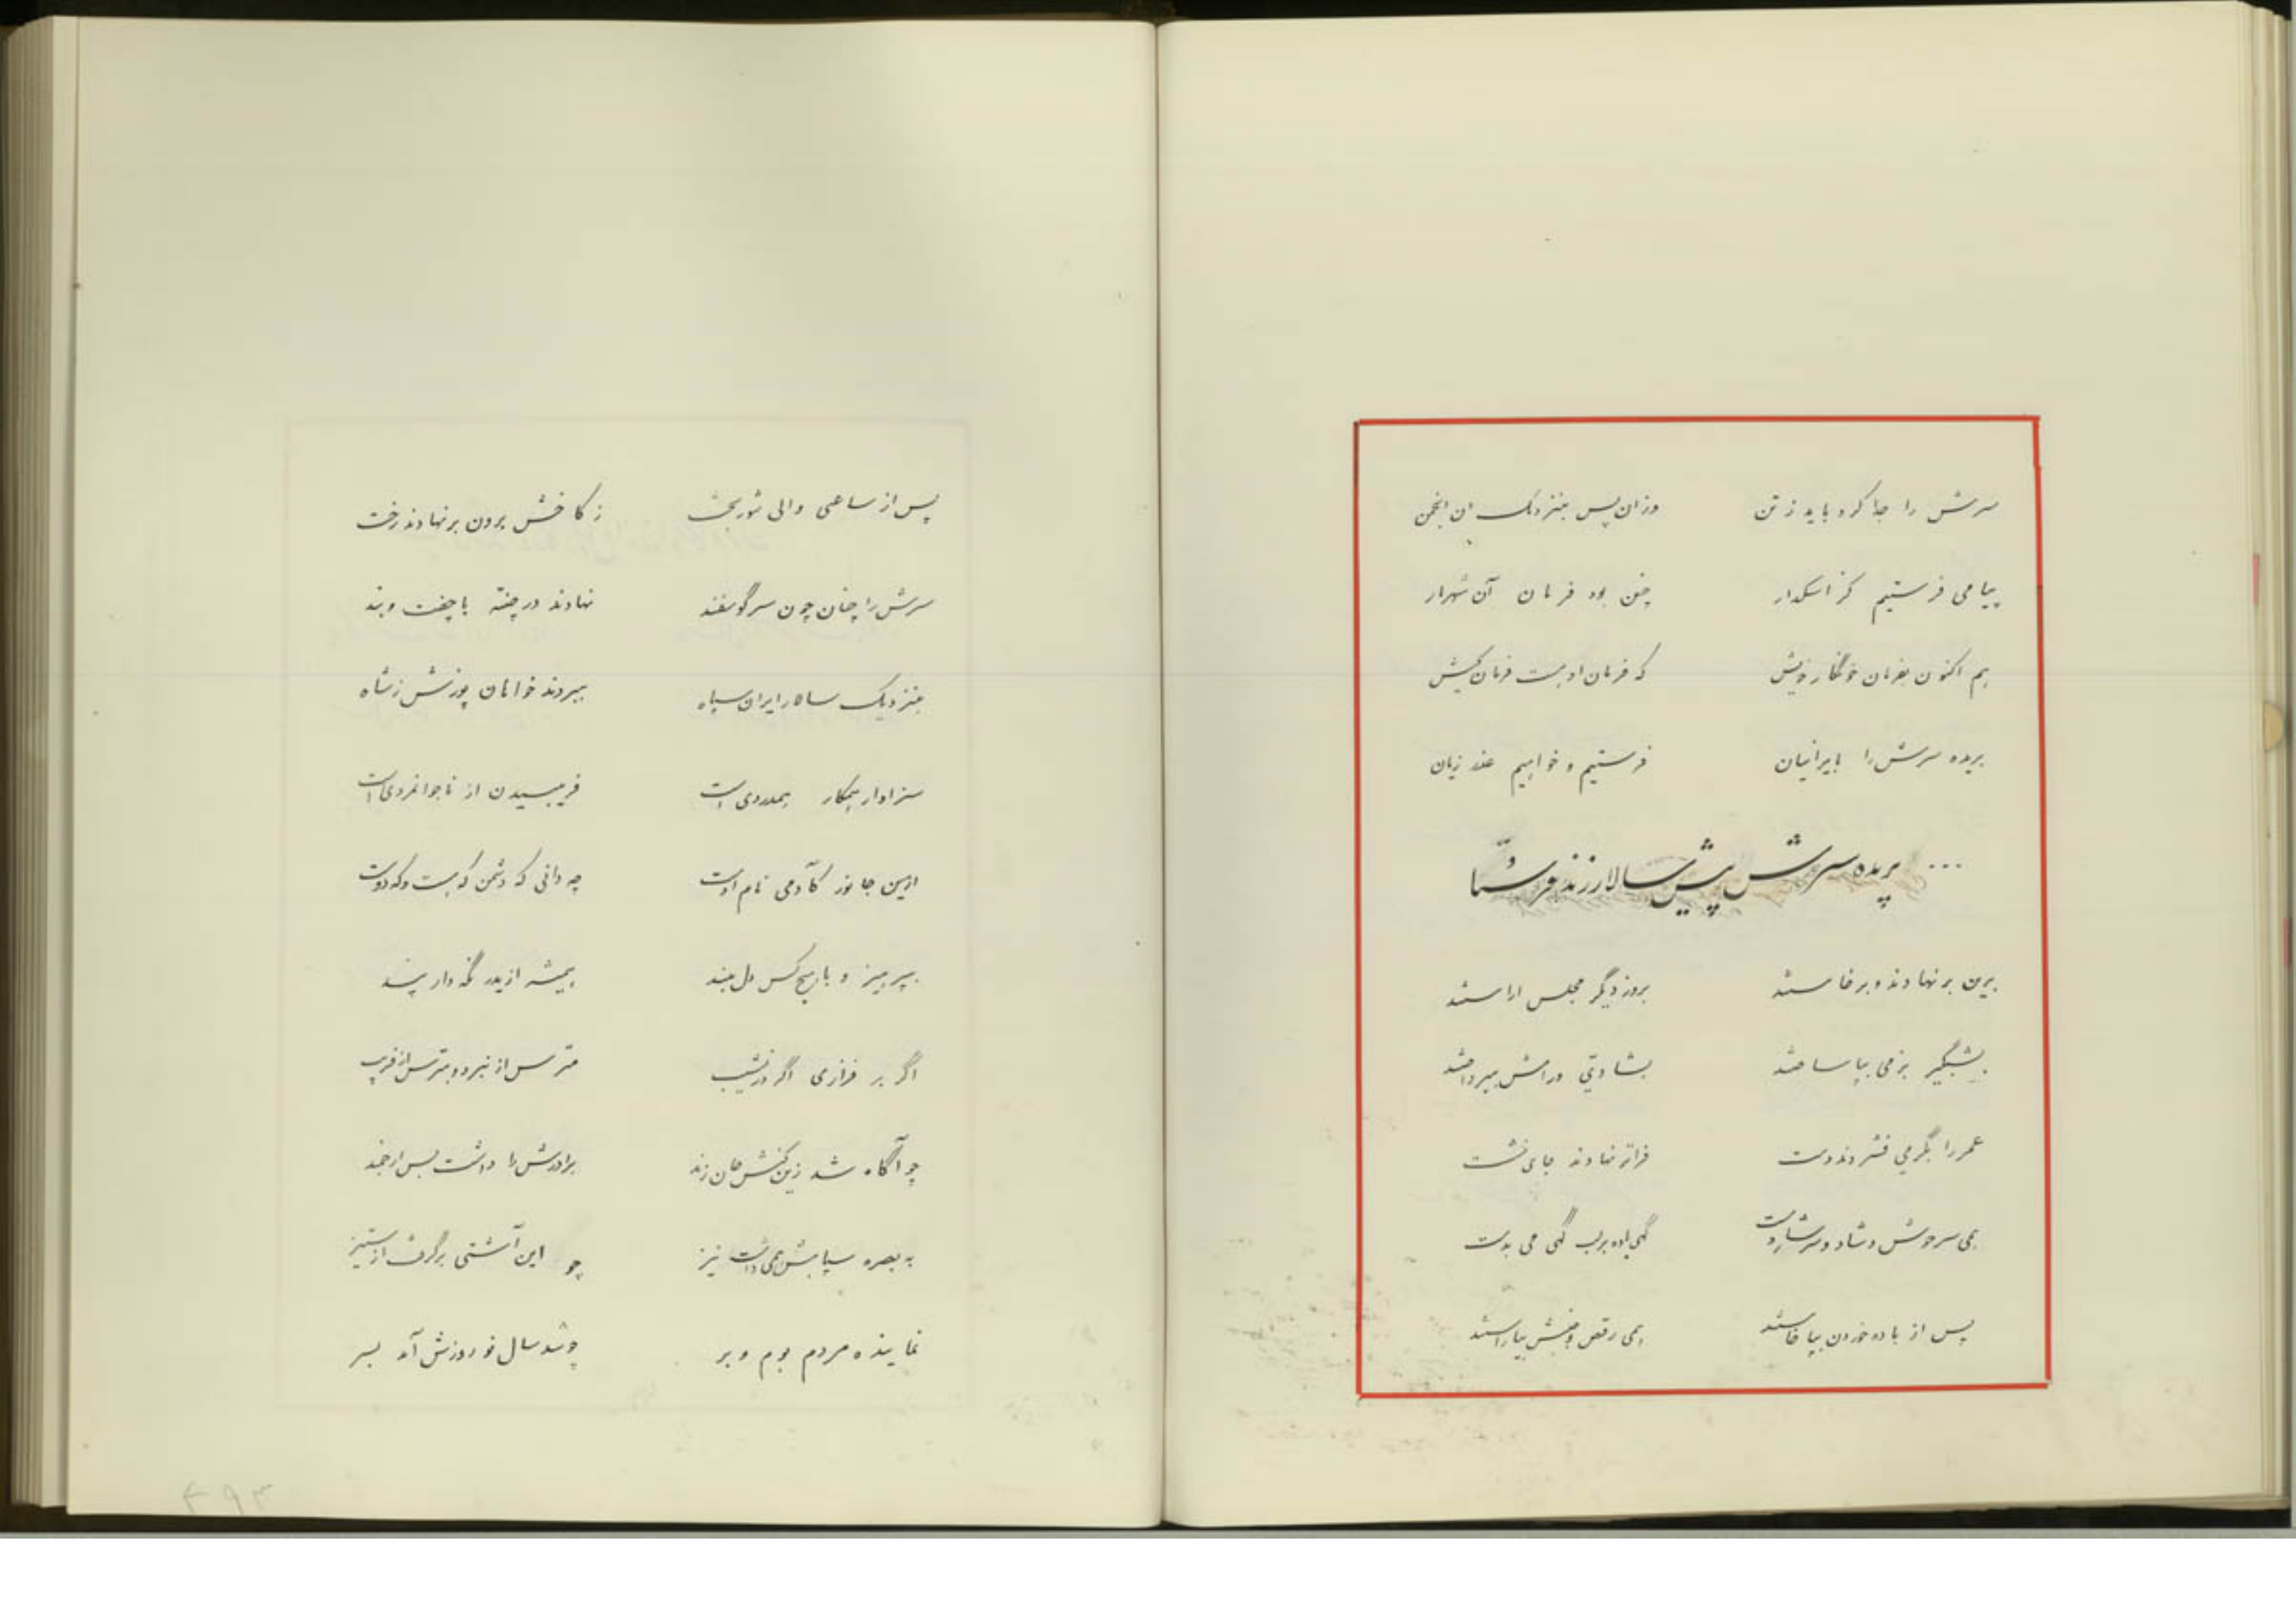 سرش را جدا کرد باید ز تن وزان پس بنزدیک آن انجمن
پیامی فرستیم کز اسکدار چنین بود فرمان آن شهریار
هم اکنون بفرمان خونگار خویش که فرمان او هست فرمان کیش
بریده سرش را بایرانیان فرستیم و خواهیم عذر زیان
... بریده سرش پیش سالار زند فرستاد
برین بر نهادند و برخاستند بروز دیگر مجلس آراستند
بشبگیر بزمی بپا ساختند بشادی و رامش بپرداختند
عمر را بگرمی فشردند دست فراتر نهادند جای نشست
همی سرخوش و شاد و سرشار و مست گهی باده بر لب گهی می بدست
پس از باده خوردن بپا خاستند همی رقص و جنبش بیاراستند
پس از ساعتی والی شوربخت ز کاخش برون بر نهادند رخت
سرش را چنان چون سر گوسفند نهادند در جفته با جفت و بند
بنزدیک سالار ایران سپاه ببردند خواهان پوزش ز شاه
سزاوار همکار همدردی است فریبیدن از ناجوانمردی است
ازین جانور کآدمی نام اوست چه دانی که دشمن که هست و که دوست
بپرهیز و با هیچکس دل مبند همیشه از پدر نگه دار پند
اگر بر فرازی اگر در نشیب مترس از نبرد و بترس از فریب
چو آگاه شد زین کنش خان زند برادرش را داشت بس ارجمند
به بصره سپاهش همی داشت نیز چو این آشتی برگرفت از ستیز
نماینده مردم بوم و بر چو شد سال نو روزش آمد بسر
۴۹۳